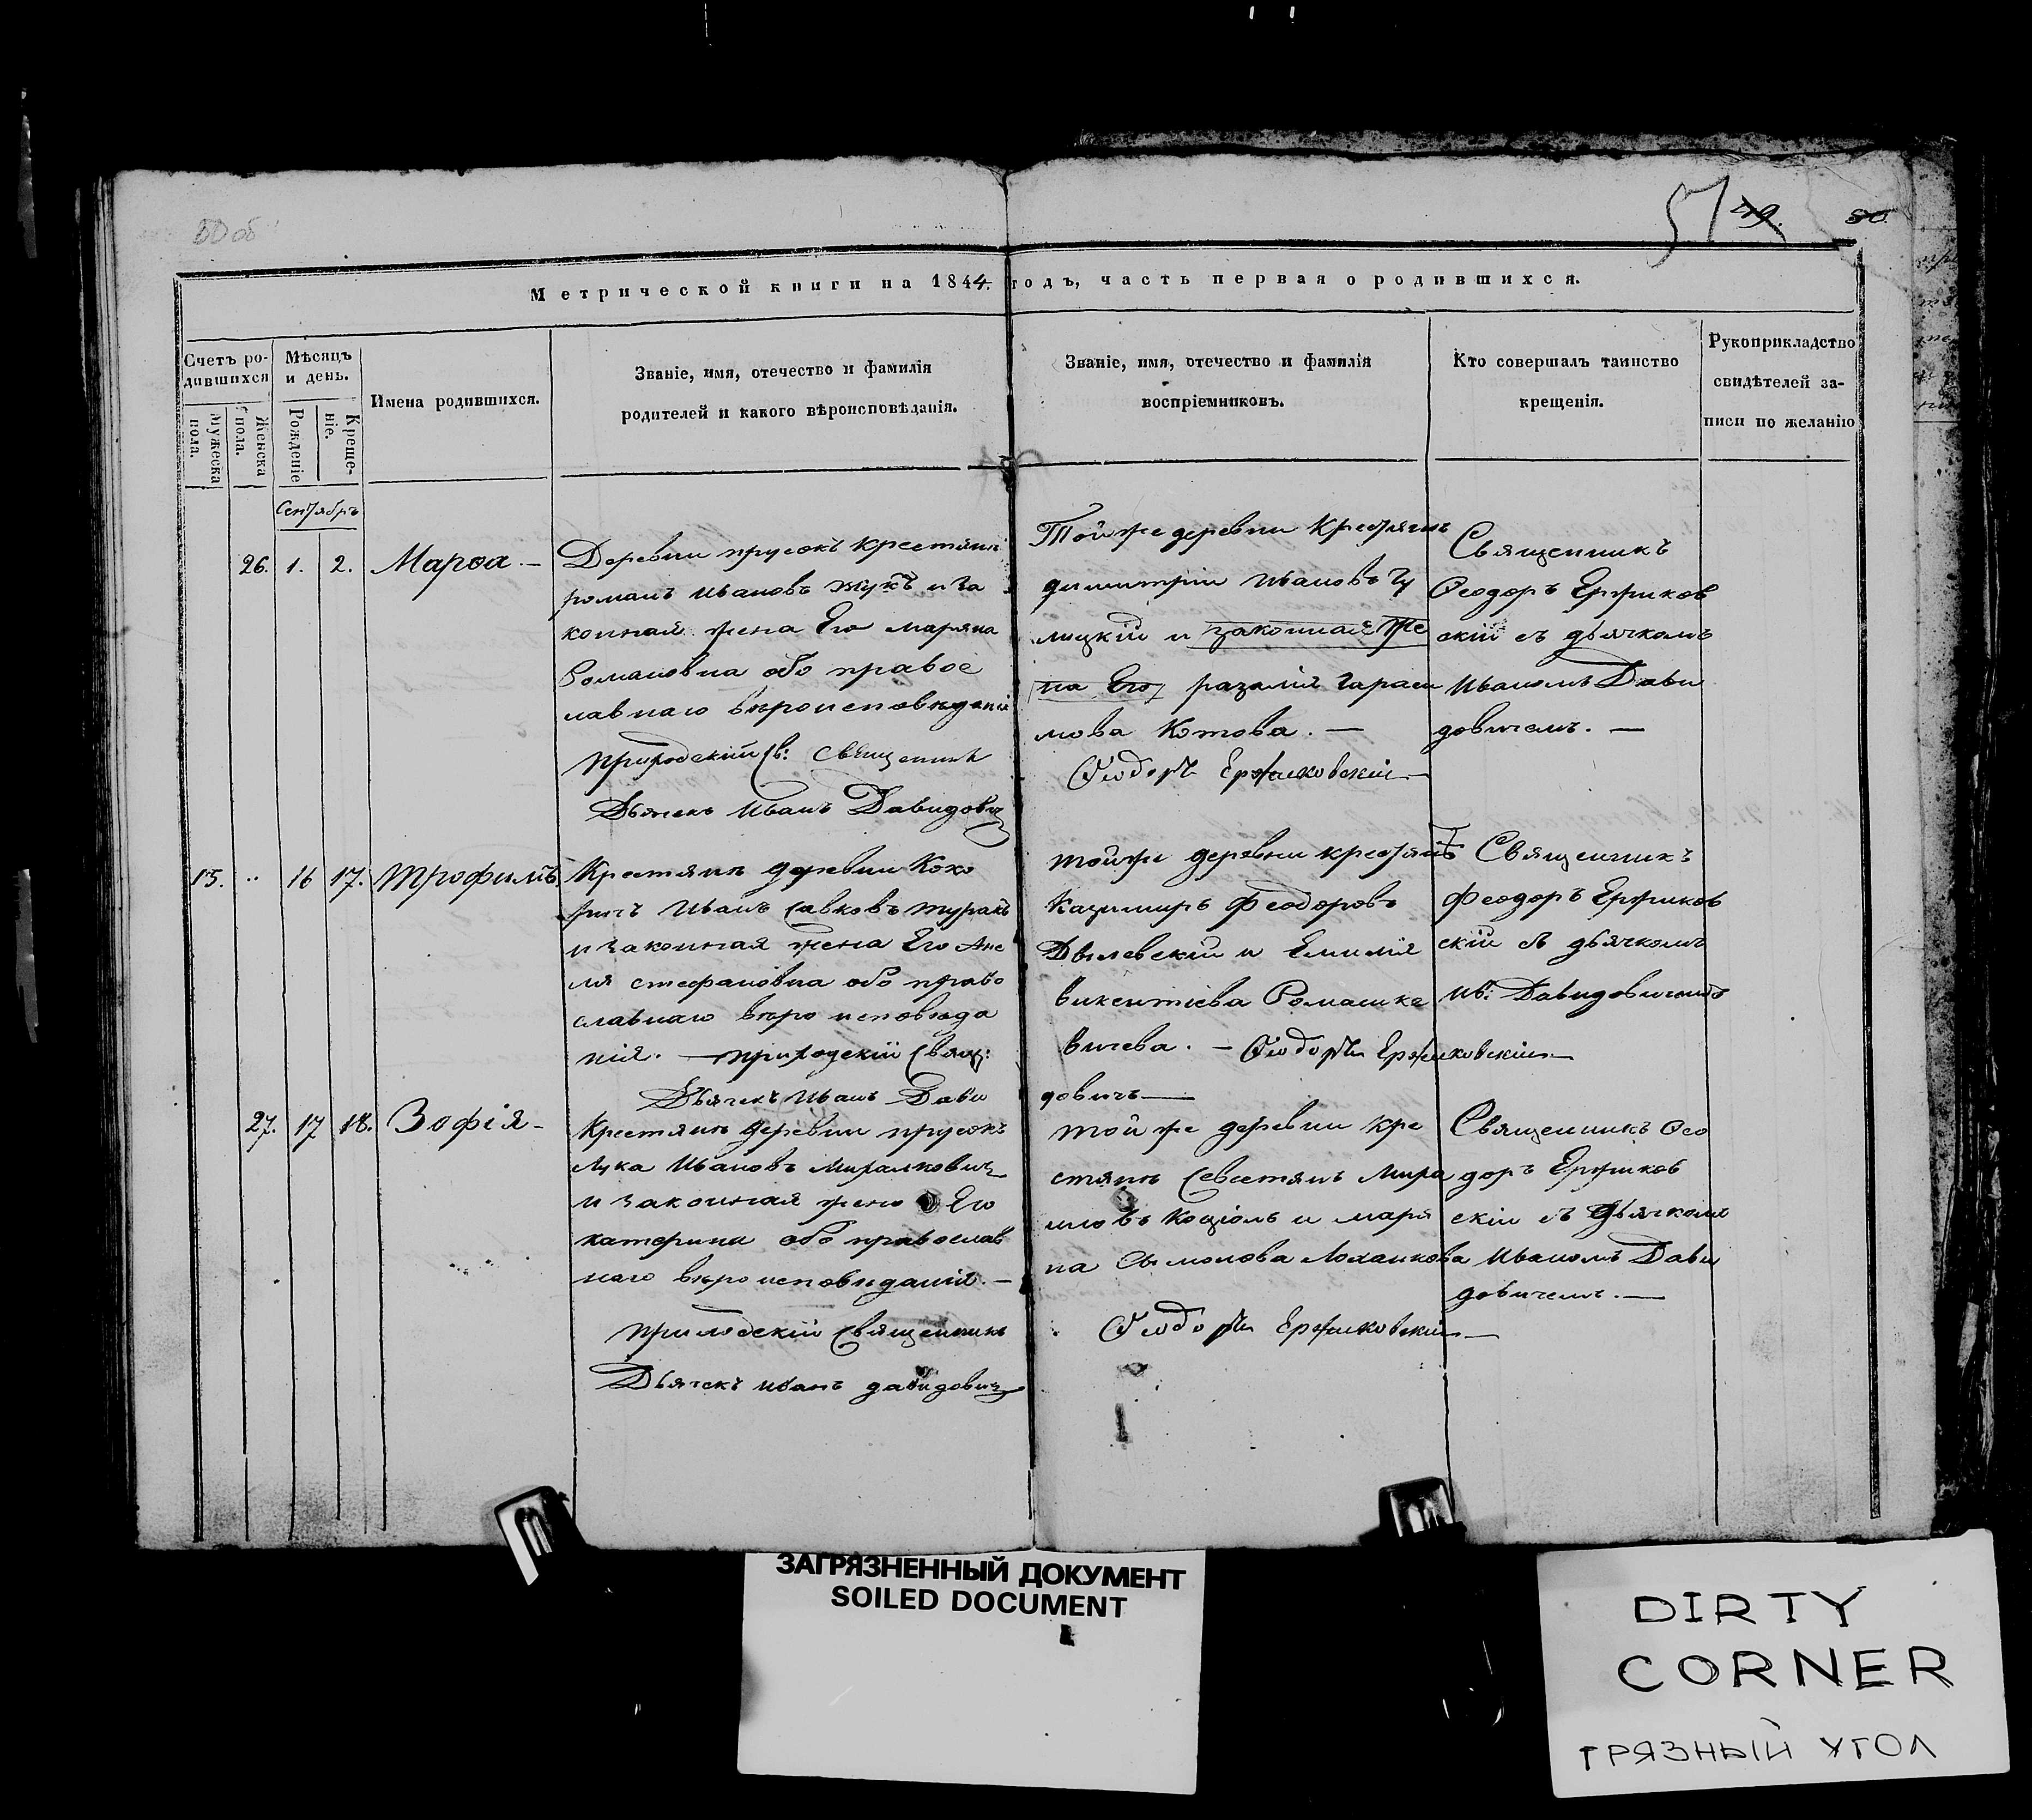 50 об
51 49. 50
Метрической книги на 1844. годъ, часть первая о родившихся.
Счетъ ро-
дившихся
Мужеска
пола.
Женска
пола.
Мѣсяцъ
и день.
Рожденіе
Креще-
ніе.
Имена родившихся.
Званіе, имя, отечество и фамилія
родителей и какого вѣроисповѣданія.
Званіе, имя, отечество и фамилія
воспріемниковъ.
Кто совершалъ таинство
крещенія.
Рукоприкладство
свидѣтелей за-
писи по желанію
Сентябрь
26. 1. 2. Марѳа. —
Деревни прусокъ крестянинъ
романъ Ивановъ жукъ и за
конная жена Его маряна
Романовна обо правос
лавнаго вѣроисповѣданія
Приходскій Св: Священникъ
Дьячекъ Иванъ Давидовичъ
Той же деревни Крестянинъ
димитрій Ивановъ
лицкій и законная же
на Его разалія Гараси
мова Котова. —
Ѳеодоръ Ержиковскій
Священникъ
Ѳеодоръ Ержиков
скій съ дьячкомъ
Иваномъ Дави
довичемъ. —
15. " 16 17. Трофимъ
Крестянъ деревни Кохо
Иванъ Савковъ туракъ
и законная жена Его Ане
ля стефановна обо право
славнаго вѣро исповѣда
нія. — приходскій Свящ:
Дьячекъ Иванъ Дави
тойже деревни крестянъ
Казимиръ Феодоровъ
Дылевскій и Емилія
викентіева Ромашке
вичева. — Ѳеодоръ Ержиковскій
довичъ —
Священникъ
Феодоръ Ержиков
скій съ дьячкомъ
Ив: Давидовичемъ
27. 17 18. Зофія —
Крестянъ деревни прусокъ
Лука Ивановъ
и законная жена Его
катерина обо православ
наго вѣро исповѣданія. —
приходскій Священникъ
Дьячекъ иванъ давидовичъ
той же деревни кре
стянъ Севестянъ Мира
новъ Коціолъ и маря
на Сымонова Лоханкова
Ѳеодоръ Ержиковскій —
Священникъ Ѳео
доръ Ержиков
скій съ Дьячкомъ
Иваномъ Дави
довичемъ. —
ЗАГРЯЗНЕННЫЙ ДОКУМЕНТ
SOILED DOCUMENT
DIRTY
CORNER
ГРЯЗНЫЙ УГОЛ